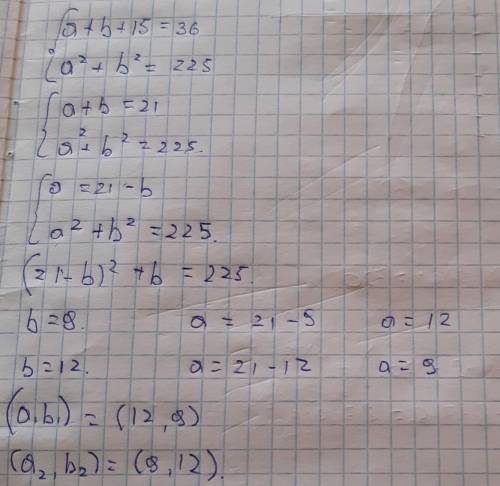 a+b+15=36
a²+b²= 225
a+b=21
a²+b²=225.
a=21-b
a²+b²=225.
(21-b)²+b=225.
b=9. a=21-9 a=12
b=12. a=21-12 a=9
(a,b₁)=(12,9)
(a₂,b₂)=(9,12).